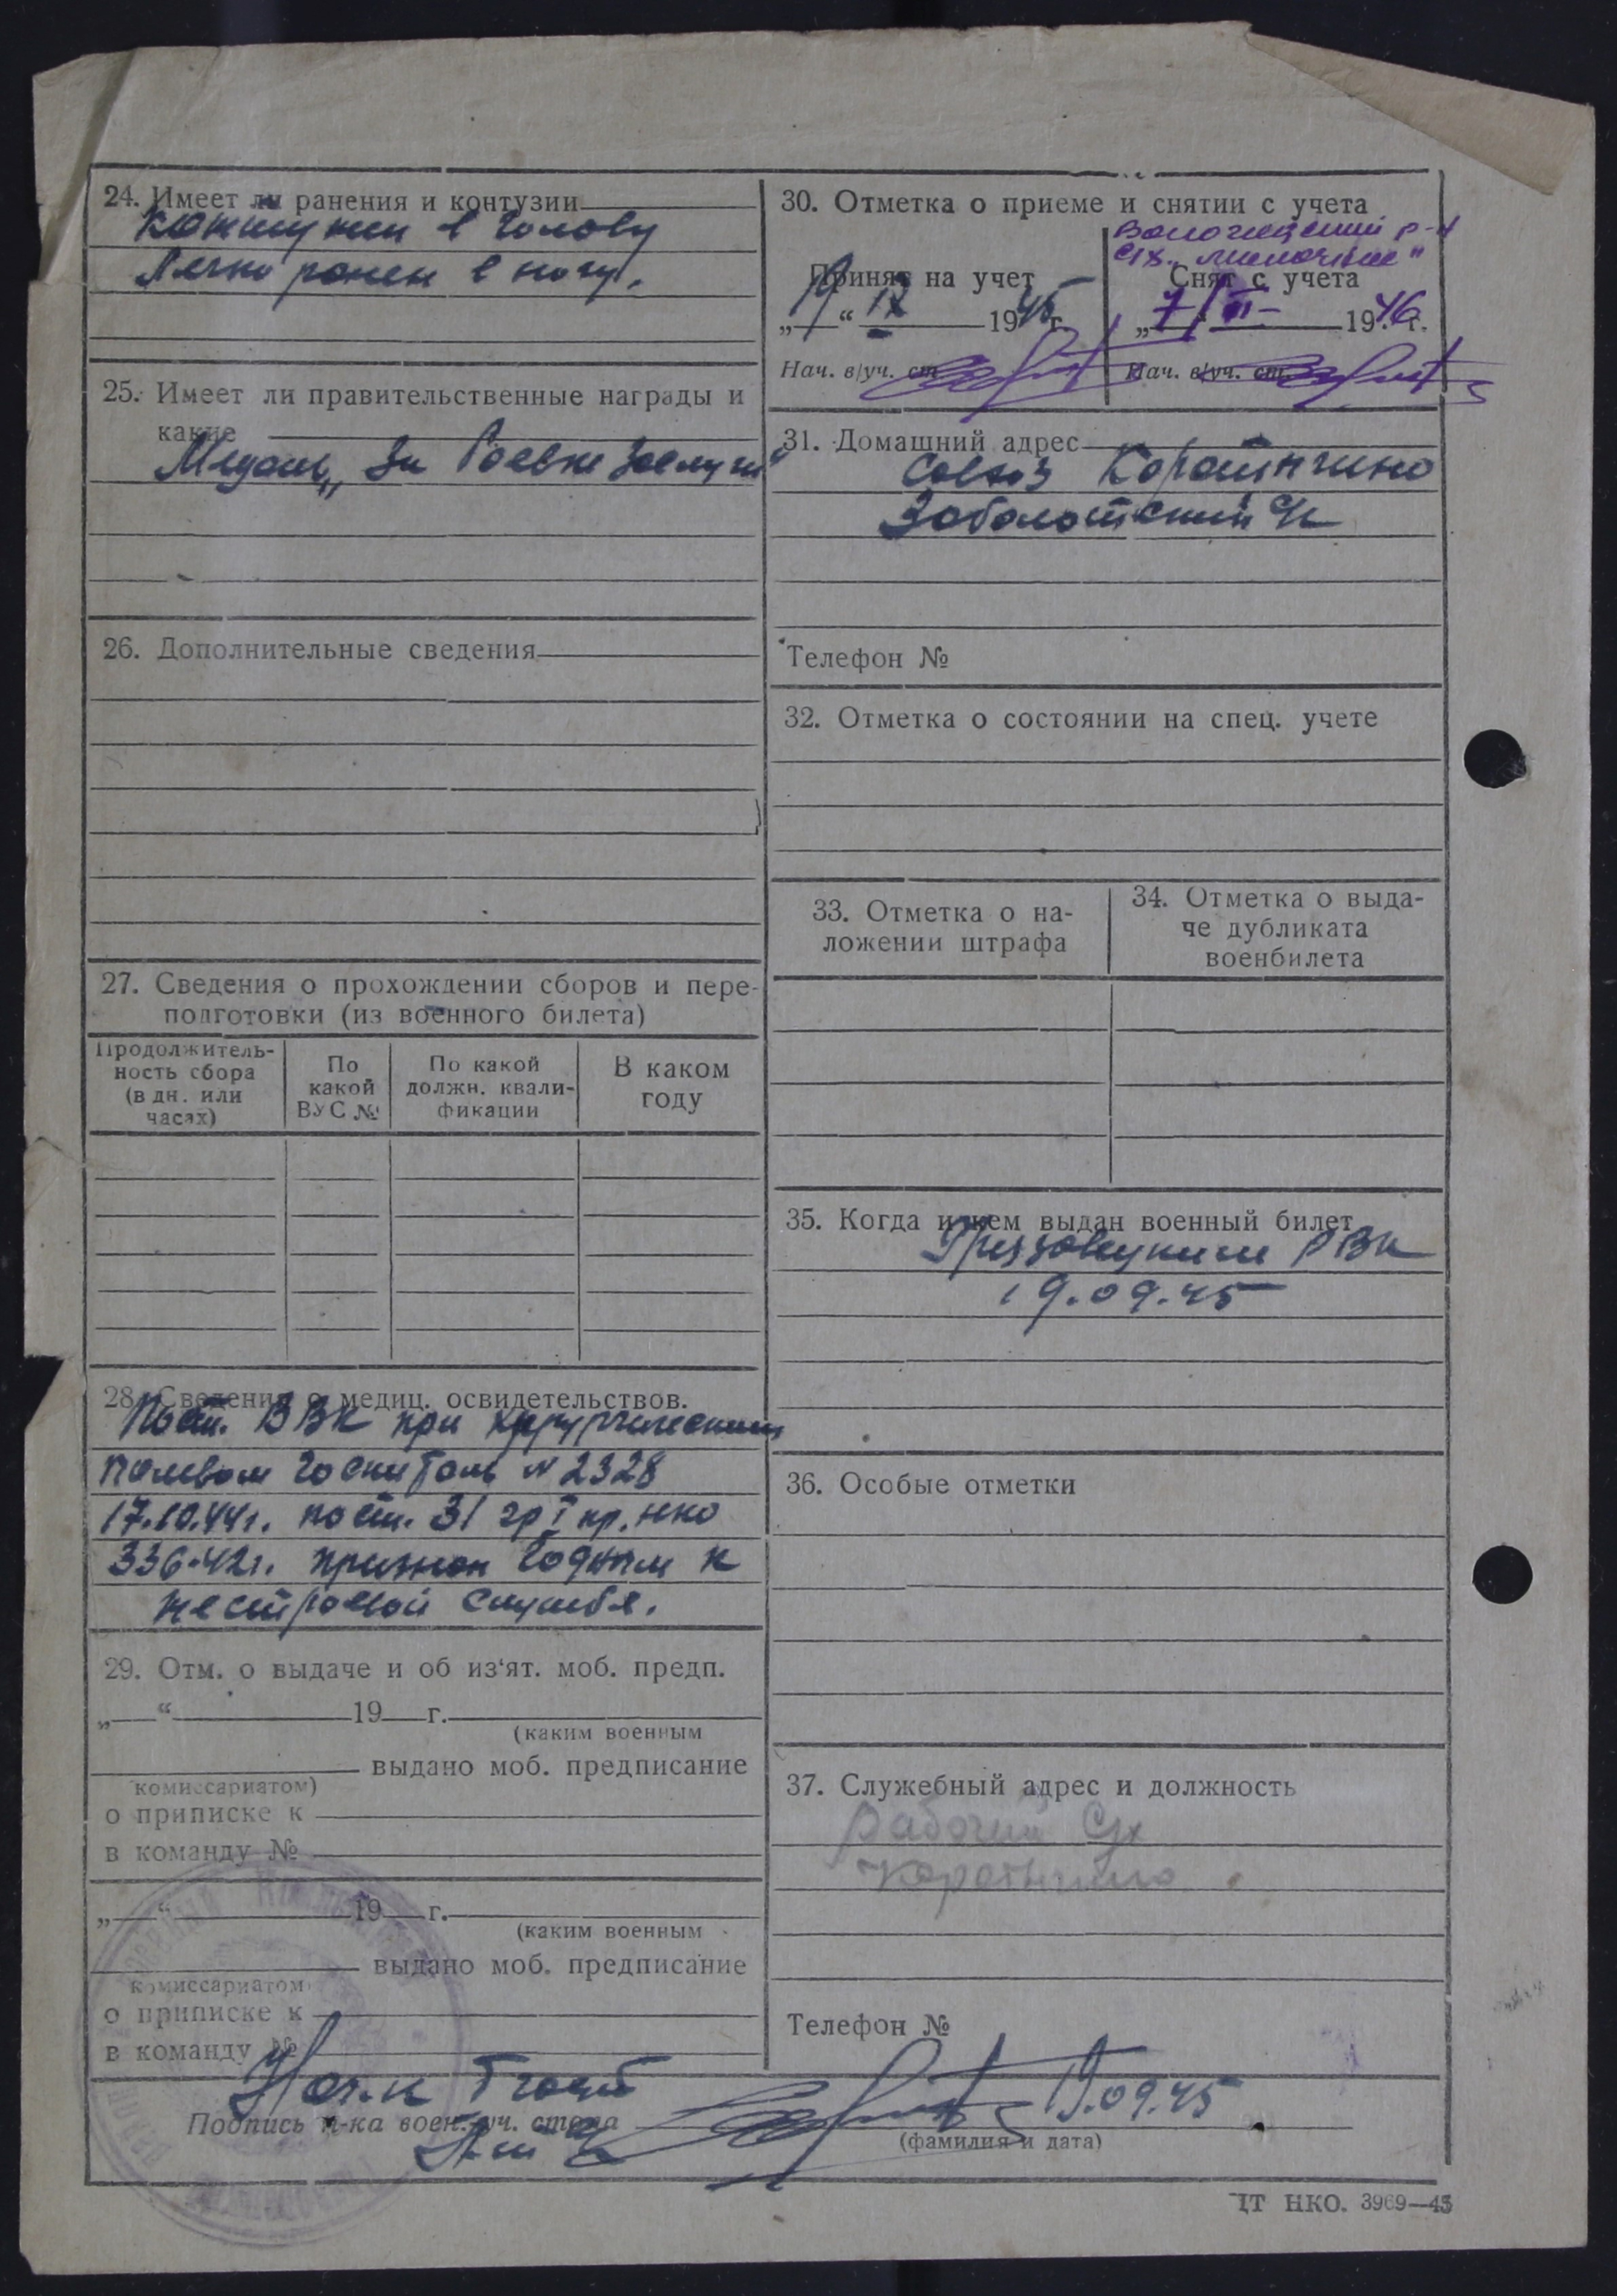 24. Имеет ли ранения и контузии
Контузии в голову
Легко ранен в ногу.
25. Имеет ли правительственные награды и
какие
Медаль „За боевые заслуги"
26. Дополнительные сведения
27. Сведения о прохождении сборов и пере-
подготовки (из военного билета)
Продолжитель-
ность сбора
(в дн. или
часах)
По
какой
ВУС №
По какой
должн. квали-
фикации
В каком
году
28. Сведения о медиц. освидетельствов.
Пост. ВВК при хирургическим
полевом госпиталь № 2328
17.10.44г. по ст. 31 гр I пр. НКО
336-42г. признан годным к
нестроевой службе.
29. Отм. о выдаче и об из'ят. моб. предп.
„ “ 19 г.
(каким военным
выдано моб. предписание
комиссариатом)
о приписке к
в команду №
„ “ 19 г.
(каким военным
выдано моб. предписание
комиссариатом
о приписке к
в команду №
30. Отметка о приеме и снятии с учета
Принят на учет
„ “ IX 1945 г.
Нач. в/уч. ст.
р-н
с/х.
Снят с учета
„7“ 1946 г.
Нач. в/уч. ст.
31. Домашний адрес
Совхоз Коротыгино
Заболотский с/с
Телефон №
32. Отметка о состоянии на спец. учете
33. Отметка о на-
ложении штрафа
34. Отметка о выда-
че дубликата
военбилета
35. Когда и кем выдан военный билет
Грязовецким РВК
19.09.45
36. Особые отметки
37. Служебный адрес и должность
Рабочий с/х
Коротыгино
Телефон №
Нач.к
Подпись н-ка воен.-уч. стола
19.09.45
(фамилия и дата)
ЦТ НКО. 3969—45